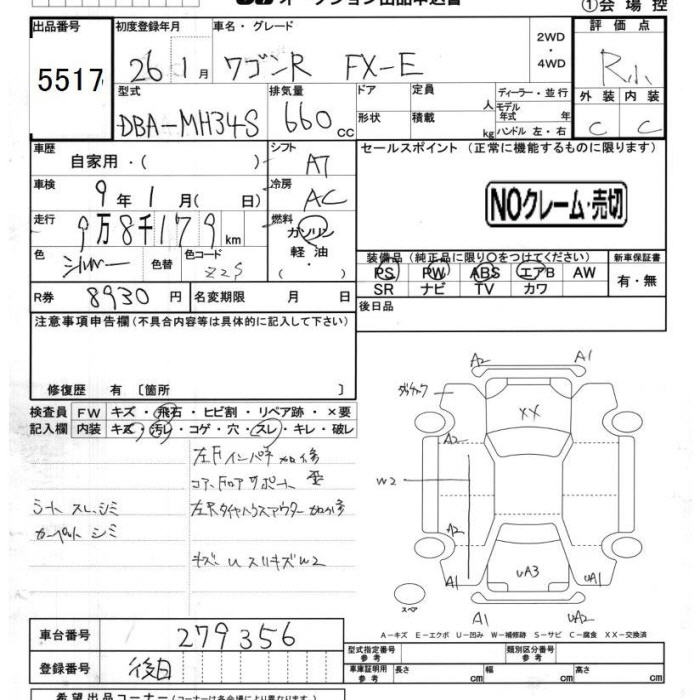 オークション出品申込書
①会場控
出品番号
5517
初度登録年月
26年1月
車名・グレード
ワゴンR FX-E
2WD
・
4WD
評価点
R小
外装 内装
C C
型式
DBA-MH34S
排気量
660cc
ドア
形状
定員 人
積載 kg
ディーラー・並行
モデル年式 年
ハンドル 左・右
車歴
自家用・( )
シフト
AT
車検
9年1月( 日)
冷房
AC
走行
9万8千179km
燃料
ガソリン
軽油
・( )
色
シルバー
色替
色コード
Z2S
R券
8930円
名変期限 月 日
セールスポイント (正常に機能するものに限ります)
NOクレーム・売切
装備品 (純正品に限り○をつけてください)
PS PW ABS エアB AW
SR ナビ TV カワ
新車保証書
有・無
後日品
注意事項申告欄 (不具合内容等は具体的に記入して下さい)
修復歴 有 〔箇所 〕
検査員
記入欄
FW キズ・飛石・ヒビ割・リペア跡・×要
内装 キズ・汚レ・コゲ・穴・スレ・キレ・破レ
左Fインパネ加修
コアフロアサポート歪
シート スレ、シミ
左Rタイヤハウスアウター加修
カーペット シミ
キズ U スリキズ W2
A2 A1
XX
A2
W2
A2
A1 UA3 UA1
スペア
A1 UA2
A-キズ E-エクボ U-凹み W-補修跡 S-サビ C-腐食 XX-交換済
車台番号
279356
登録番号
後日
型式指定番号
参考
類別区分番号
参考
車庫証明用
参考
長さ cm 幅 cm 高さ cm
希望出品コーナー